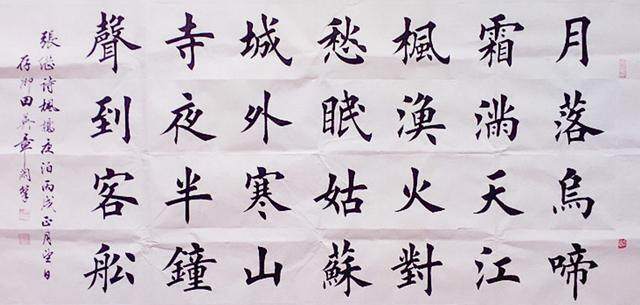 月落烏啼
霜滿天江
楓漁火對
愁眠姑蘇
城外寒山
寺夜半鐘
聲到客船
張継诗楓橋夜泊丙戌正月望日
田英章